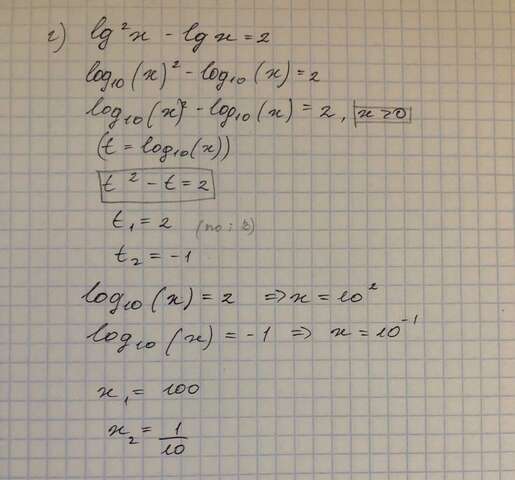 г) lg²x - lg x = 2
log₁₀(x)² - log₁₀(x) = 2
log₁₀(x)² - log₁₀(x) = 2, x > 0
(t = log₁₀(x))
t² - t = 2
t₁ = 2
t₂ = -1
log₁₀(x) = 2 => x = 10²
log₁₀(x) = -1 => x = 10⁻¹
x₁ = 100
x₂ = 1/10